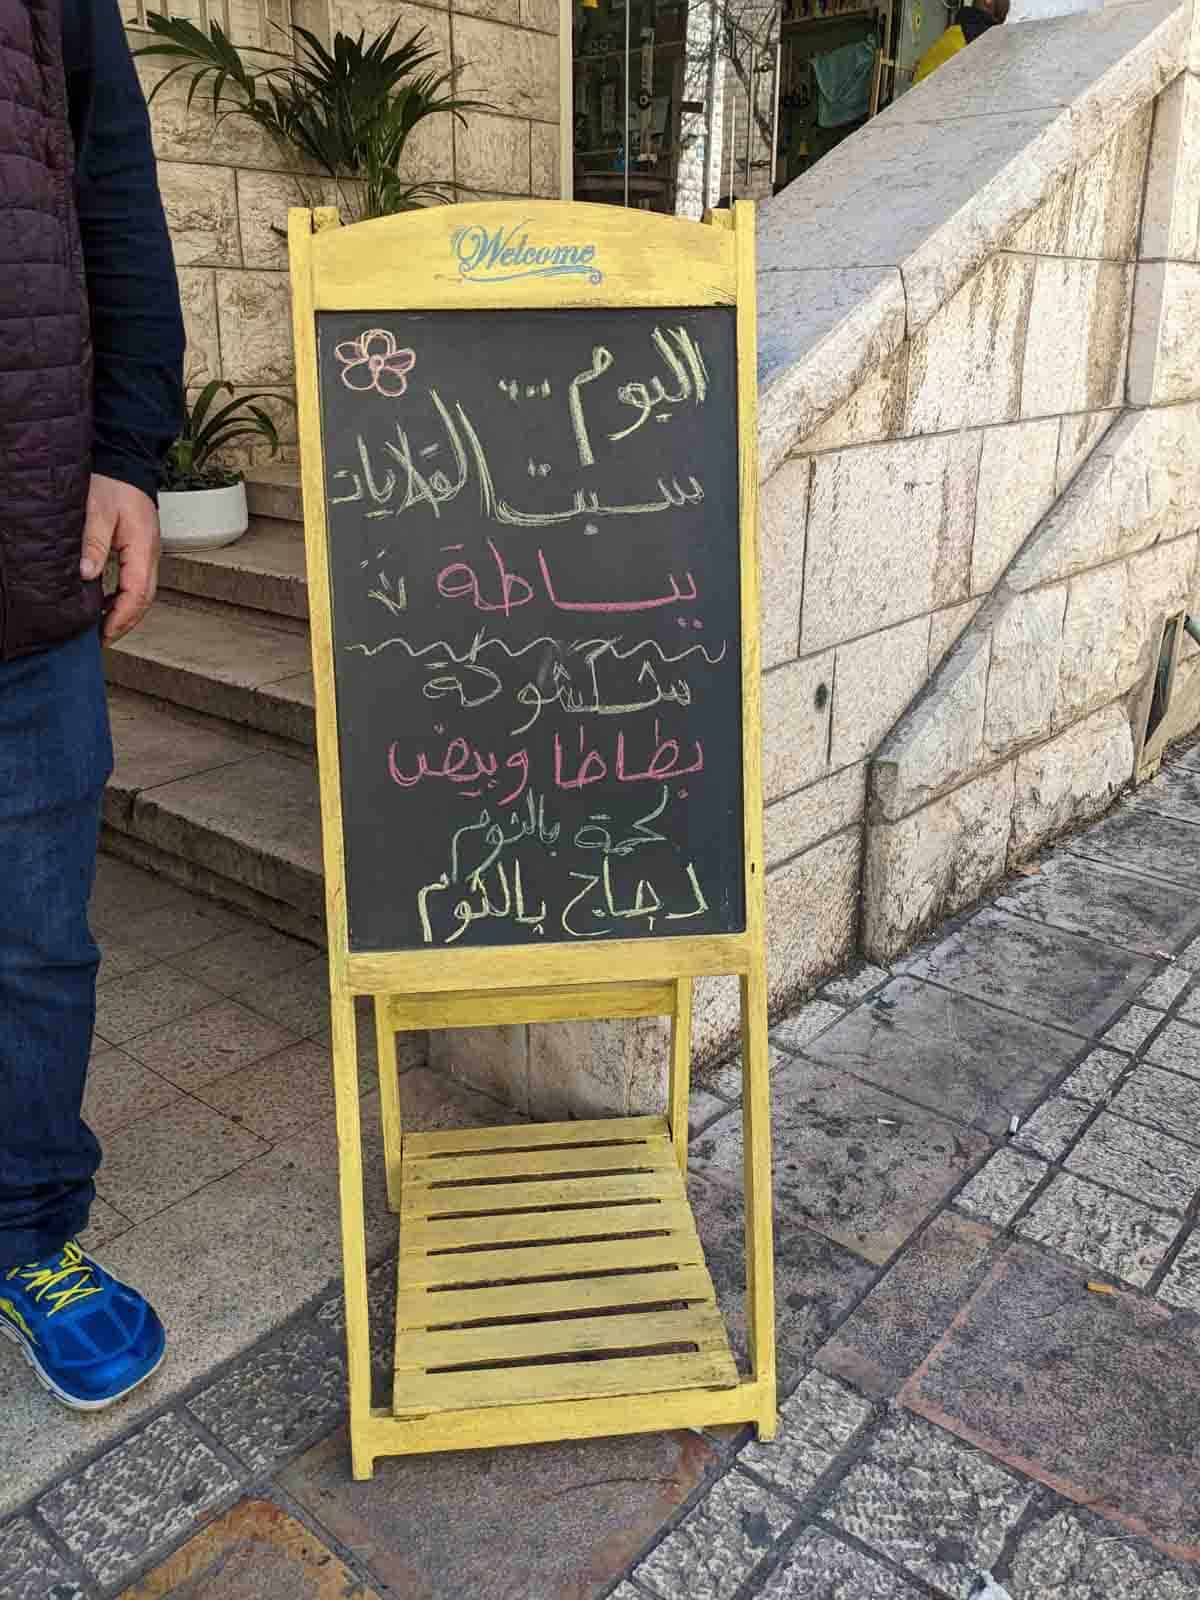 Welcome
اليوم ...
سبت القلايات
ببساطة
شكشوكة
بطاطا وبيض
لحمة بالثوم
دجاج بالثوم